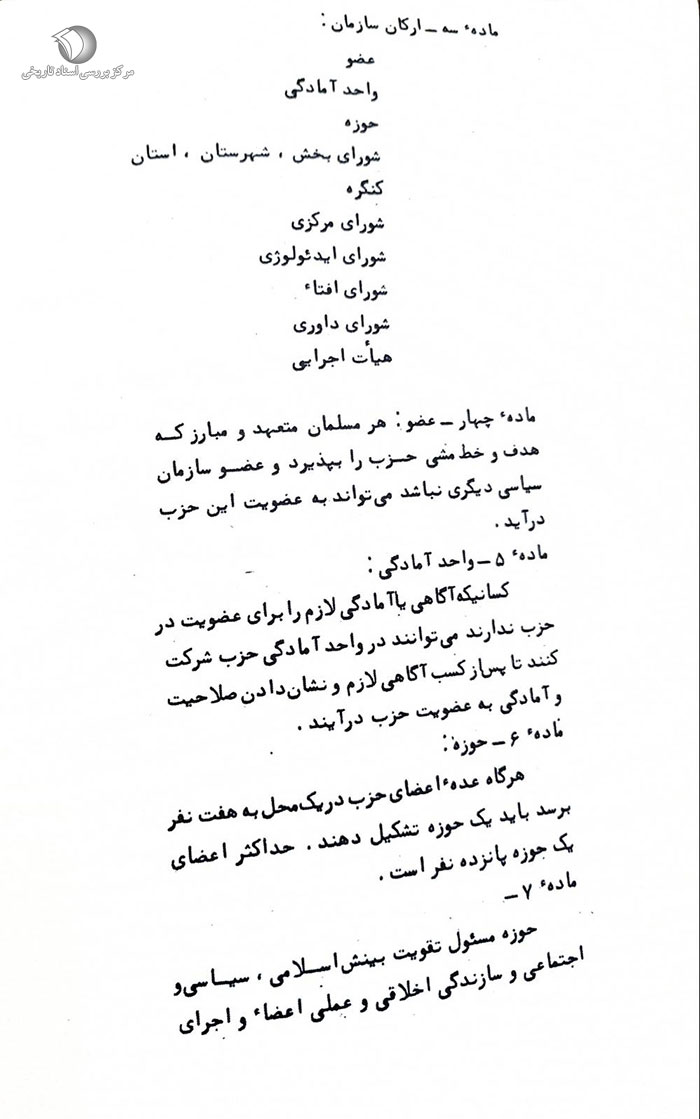 مرکز بررسی اسناد تاریخی
مادهٔ سه ــ ارکان سازمان :
عضو
واحد آمادگی
حوزه
شورای بخش ، شهرستان ، استان
کنگره
شورای مرکزی
شورای ایدئولوژی
شورای افتاء
شورای داوری
هیأت اجرایی
مادهٔ چهار ــ عضو : هر مسلمان متعهد و مبارز کــه
هدف و خط مشی حــزب را بپذیرد و عضــو سازمان
سیاسی دیگری نباشد می‌تواند به عضویت این حزب
درآید .
مادهٔ ۵ ــ واحد آمادگی :
کسانیکه آگاهی یا آمادگی لازم را برای عضویت در
حزب ندارند می‌توانند در واحد آمادگی حزب شرکت
کنند تا پس از کسب آگاهی لازم و نشان دادن صلاحیت
و آمادگی به عضویت حزب درآیند .
مادهٔ ۶ ــ حوزه :
هرگاه عدهٔ اعضای حزب در یک محل به هفت نفر
برسد باید یک حوزه تشکیل دهند . حداکثر اعضای
یک حوزه پانزده نفر است .
مادهٔ ۷ ــ
حوزه مسئول تقویت بینش اســلامی ، سیــاسی و
اجتماعی و سازندگی اخلاقی و عملی اعضاء و اجرای